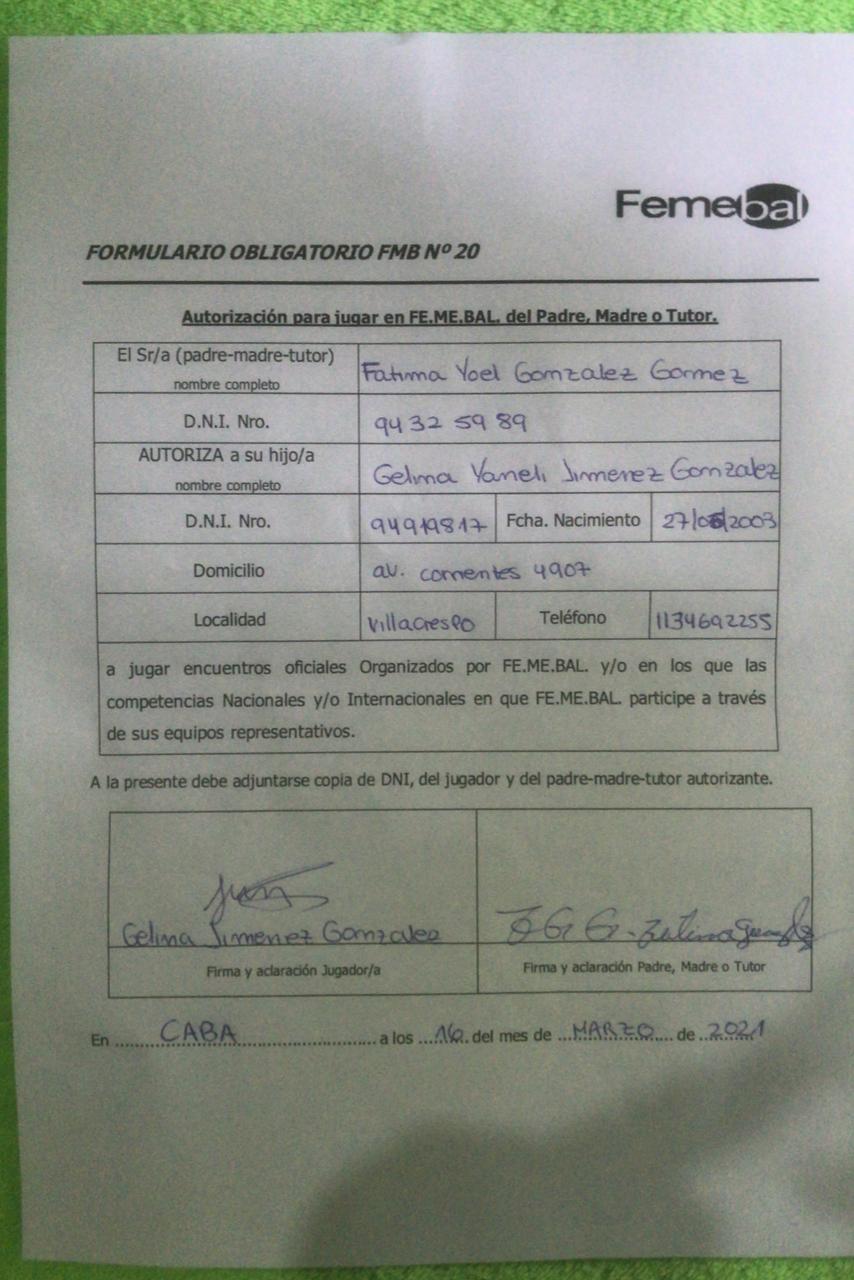 Femebal
FORMULARIO OBLIGATORIO FMB Nº 20
Autorización para jugar en FE.ME.BAL. del Padre, Madre o Tutor.
El Sr/a (padre-madre-tutor) nombre completo Fatima Yoel Gonzalez Gomez
D.N.I. Nro. 94 32 59 89
AUTORIZA a su hijo/a nombre completo Gelina Yaneli Jimenez Gonzalez
D.N.I. Nro. 94919817 Fcha. Nacimiento 27/05/2003
Domicilio av. corrientes 4907
Localidad Villacrespo Teléfono 1134692255
a jugar encuentros oficiales Organizados por FE.ME.BAL. y/o en los que las
competencias Nacionales y/o Internacionales en que FE.ME.BAL. participe a través
de sus equipos representativos.
A la presente debe adjuntarse copia de DNI, del jugador y del padre-madre-tutor autorizante.
Gelina Jimenez Gonzalez
Firma y aclaración Jugador/a
Firma y aclaración Padre, Madre o Tutor
En CABA a los 16 del mes de MARZO de 2021